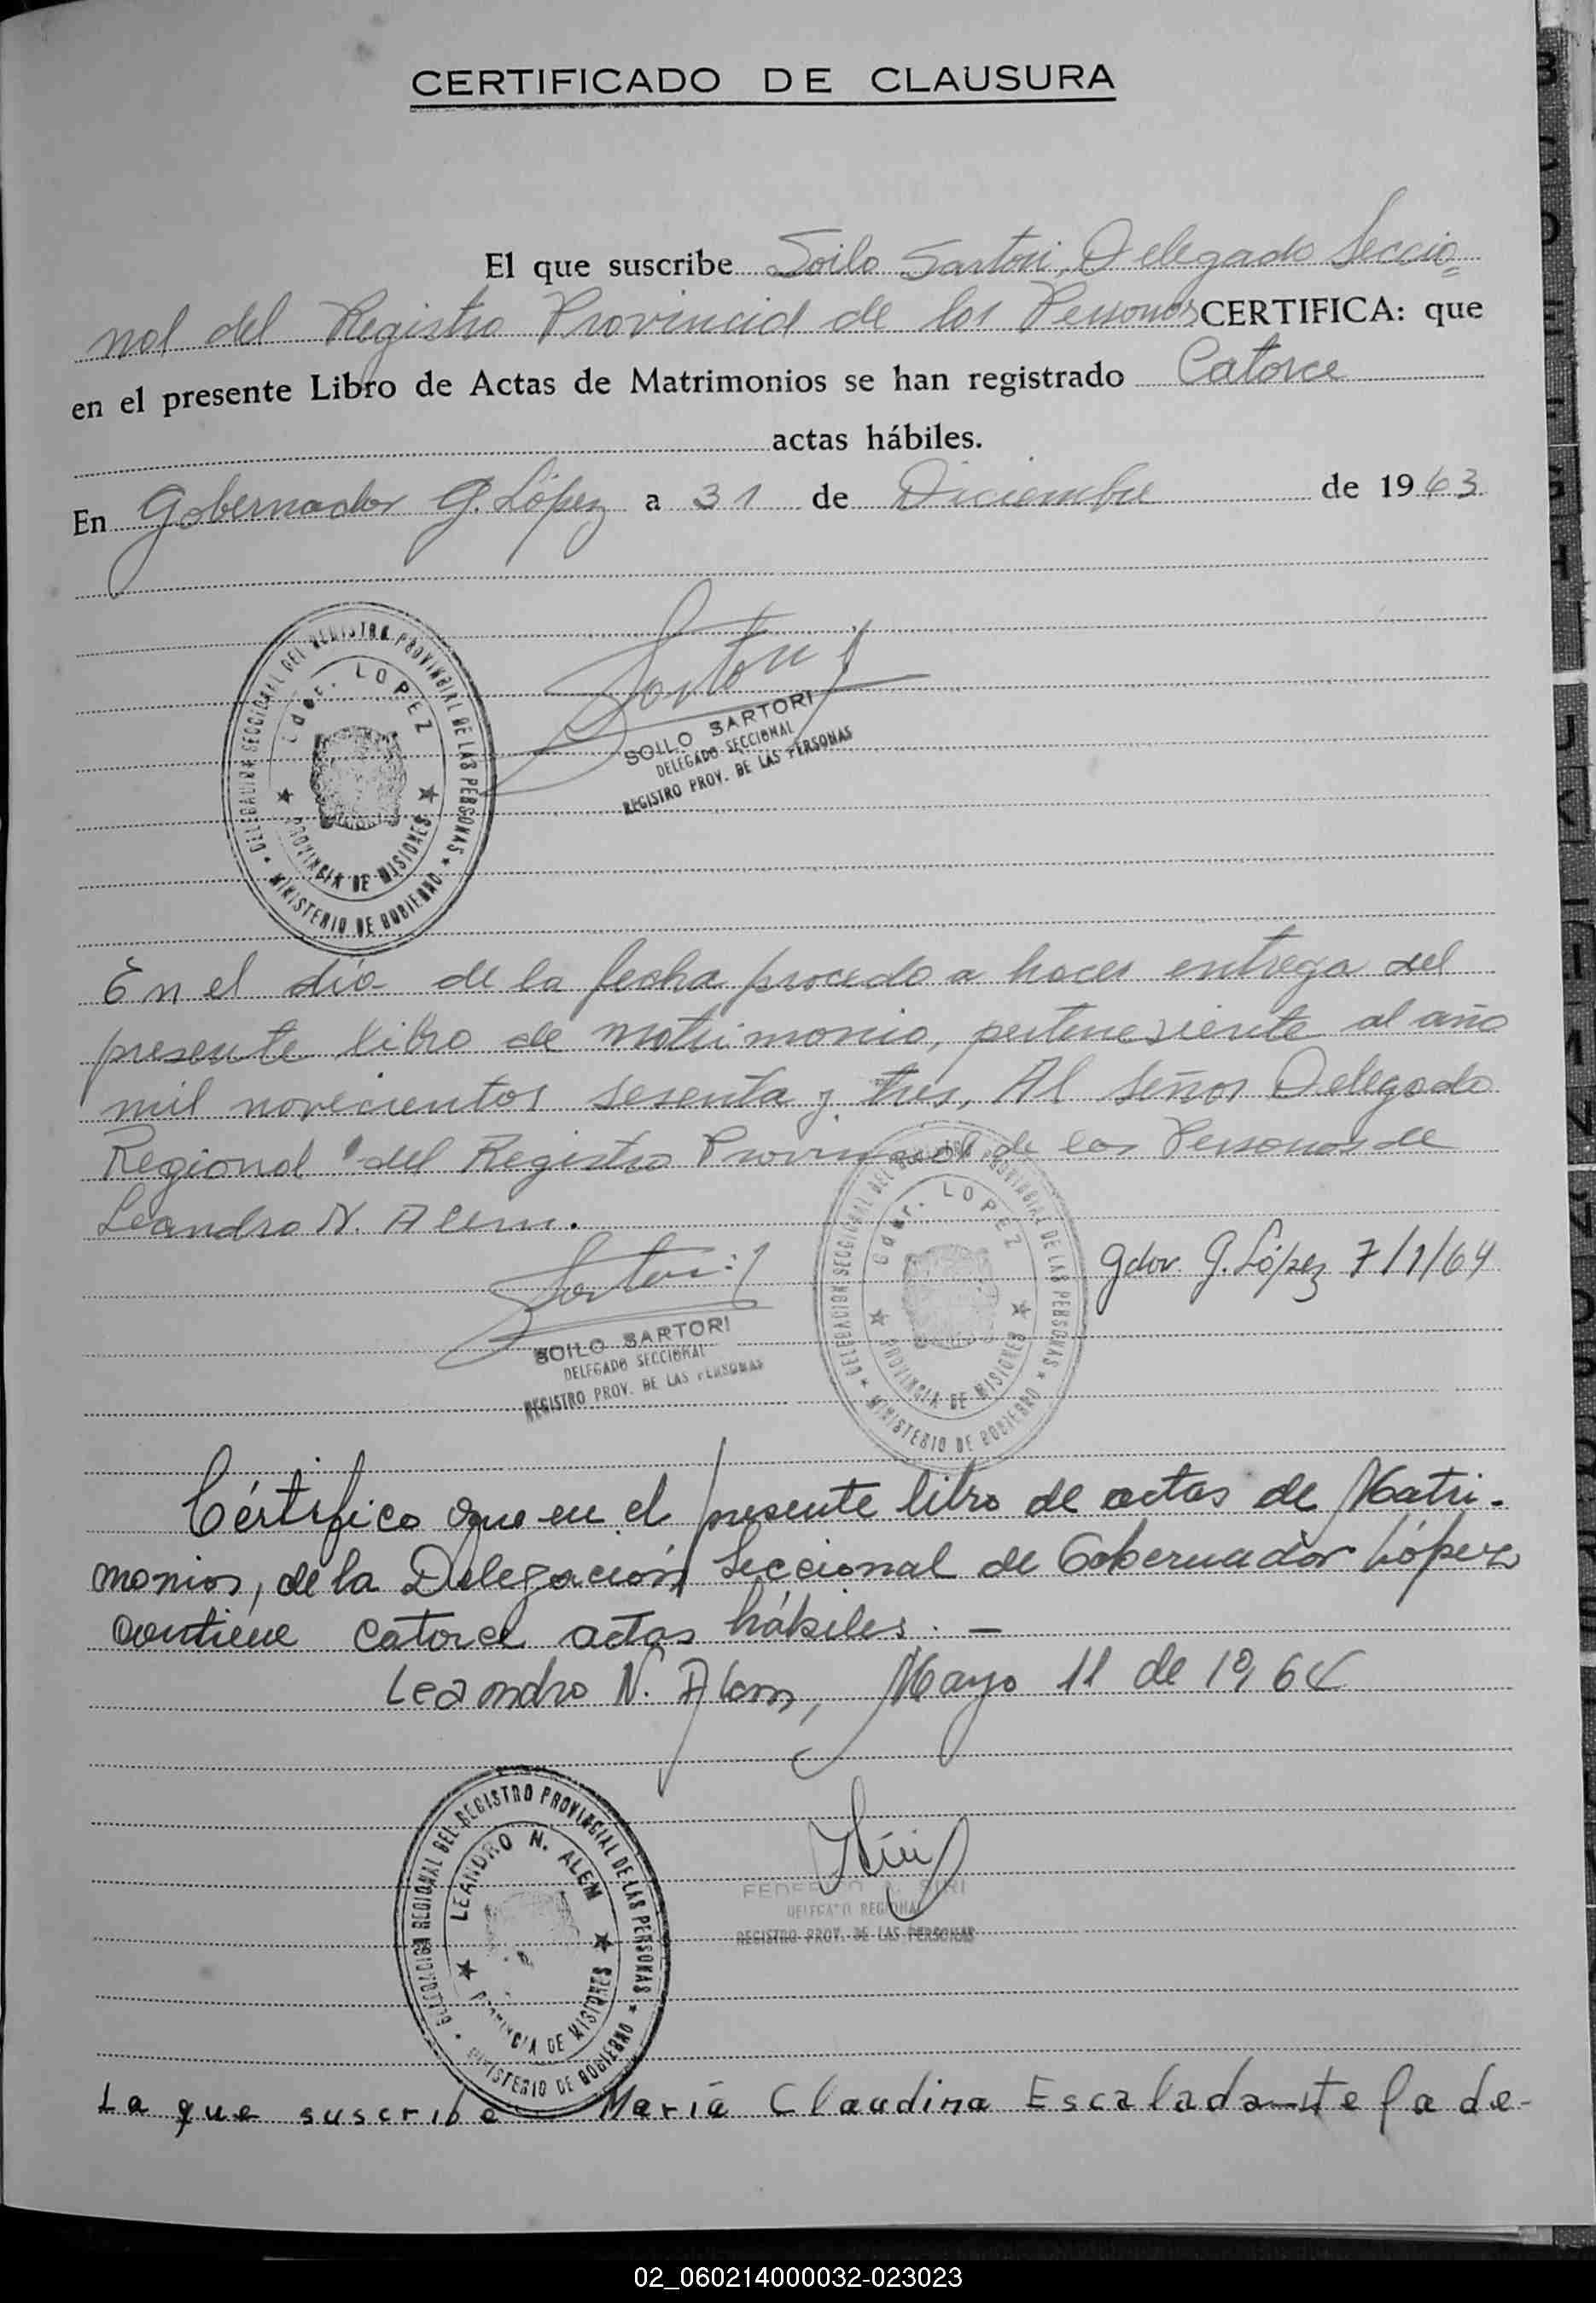 CERTIFICADO DE CLAUSURA
El que suscribe Soilo Sartori, Delegado Seccio=
nal del Registro Provincial de las Personas CERTIFICA: que
en el presente Libro de Actas de Matrimonios se han registrado Catorce
actas hábiles.
En Gobernador G. López a 31 de Diciembre de 1963
DELEGACION SECCIONAL DEL REGISTRO PROVINCIAL DE LAS PERSONAS
Gdor. LOPEZ
PROVINCIA DE MISIONES
MINISTERIO DE GOBIERNO
Sartori
SOILO SARTORI
DELEGADO SECCIONAL
REGISTRO PROV. DE LAS PERSONAS
En el día de la fecha procedo a hacer entrega del
presente libro de matrimonio, perteneciente al año
mil novecientos sesenta y tres, Al Señor Delegado
Regional del Registro Provincial de las Personas de
Leandro N. Alem.
Gdor. G. López 7/1/64
Sartori
SOILO SARTORI
DELEGADO SECCIONAL
REGISTRO PROV. DE LAS PERSONAS
DELEGACION SECCIONAL DEL REGISTRO PROVINCIAL DE LAS PERSONAS
Gdor. LOPEZ
PROVINCIA DE MISIONES
MINISTERIO DE GOBIERNO
Cértifico que en el presente libro de actas de Matri-
monios, de la Delegación Seccional de Gobernador López
contiene catorce actas hábiles. —
Leandro N. Alem, Mayo 11 de 1964
DELEGACION REGIONAL DEL REGISTRO PROVINCIAL DE LAS PERSONAS
LEANDRO N. ALEM
PROVINCIA DE MISIONES
MINISTERIO DE GOBIERNO
Siri
FEDERICO SIRI
DELEGADO REGIONAL
REGISTRO PROV. DE LAS PERSONAS
La que suscribe María Claudina Escalada Jefa de-
02_060214000032-023023